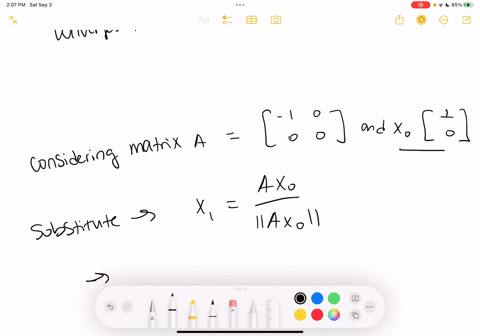 2:07 PM Sat Sep 3
85%
considering matrix A = [ -1 0 0 0 ] and x₀ [ 1 0 ]
Substitute → x₁ = Ax₀ / ||Ax₀||
→